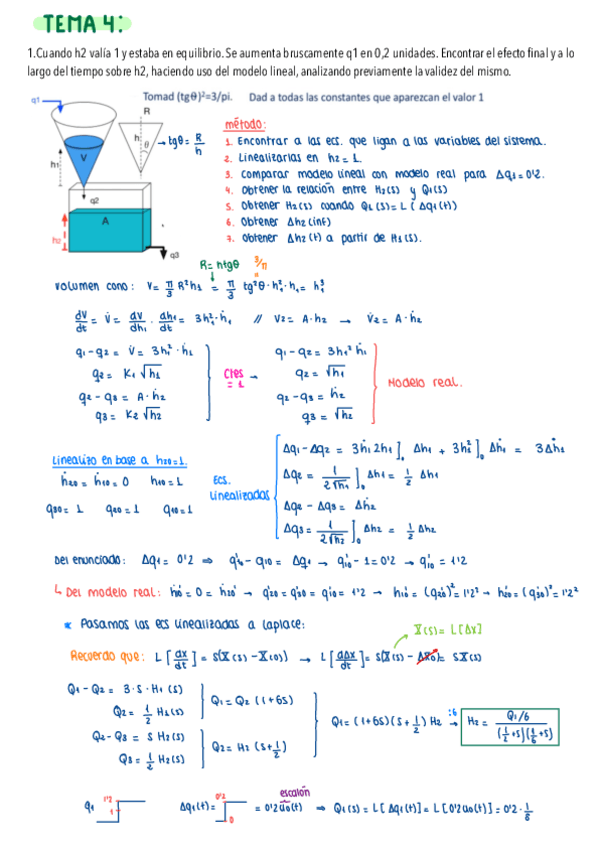 TEMA 4:
1.Cuando h2 valía 1 y estaba en equilibrio. Se aumenta bruscamente q1 en 0,2 unidades. Encontrar el efecto final y a lo
largo del tiempo sobre h2, haciendo uso del modelo lineal, analizando previamente la validez del mismo.
Tomad (tgθ)²=3/pi. Dad a todas las constantes que aparezcan el valor 1
q1
R
h
θ
→ tgθ = R/h
V
h1
q2
A
h2
q3
método:
1. Encontrar a las ecs. que ligan a las variables del sistema.
2. Linealizarlas en h2 = 1.
3. Comparar modelo lineal con modelo real para Δq1 = 0'2.
4. Obtener la relación entre H2(s) y Q1(s)
5. Obtener H2(s) cuando Q1(s) = L(Δq1(t))
6. Obtener Δh2(inf)
7. Obtener Δh2(t) a partir de H2(s).
R = htgθ 3/π
Volumen cono: V = π/3 R² h1 = π/3 tg²θ · h1² · h1 = h1³
dV/dt = V̇ = dV/dh1 · dh1/dt = 3h1² · ḣ1 // V2 = A · h2 → V̇2 = A · ḣ2
q1 - q2 = V̇ = 3h1² · ḣ1
q2 = K1 √h1
q2 - q3 = A · ḣ2
q3 = K2 √h2
Ctes = 1 →
q1 - q2 = 3h1² ḣ1
q2 = √h1
q2 - q3 = ḣ2
q3 = √h2
Modelo real.
Linealizo en base a h20 = 1.
ḣ20 = ḣ10 = 0 h10 = 1
q30 = 1 q20 = 1 q10 = 1
Ecs. linealizadas
Δq1 - Δq2 = 3ḣ1 2h1]0 Δh1 + 3h1²]0 Δḣ1 = 3Δḣ1
Δq2 = 1/2√h1]0 Δh1 = 1/2 Δh1
Δq2 - Δq3 = Δḣ2
Δq3 = 1/2√h2]0 Δh2 = 1/2 Δh2
Del enunciado: Δq1 = 0'2 ⇒ q'10 - q10 = Δq1 → q'10 - 1 = 0'2 → q'10 = 1'2
↳ Del modelo real: ḣ'10 = 0 = ḣ'20 → q'20 = q'30 = q'10 = 1'2 → h'10 = (q'20)² = 1'2² → h'20 = (q'30)² = 1'2²
* Pasamos las ecs linealizadas a Laplace:
X(s) = L[Δx]
Recuerdo que: L[dx/dt] = s(X(s) - X(0)) → L[dΔx/dt] = s(X(s) - ΔX0) = sX(s)
Q1 - Q2 = 3 · s · H1(s)
Q2 = 1/2 H1(s)
Q2 - Q3 = s H2(s)
Q3 = 1/2 H2(s)
Q1 = Q2 (1+6s)
Q2 = H2 (s+1/2)
Q1 = (1+6s)(s+1/2) H2 :6 → H2 = Q1/6 / (1/2+s)(1/6+s)
q1 1'2 1
Δq1(t) = 0'2 0 = 0'2u0(t) escalón ⇒ Q1(s) = L[Δq1(t)] = L[0'2u0(t)] = 0'2 · 1/s